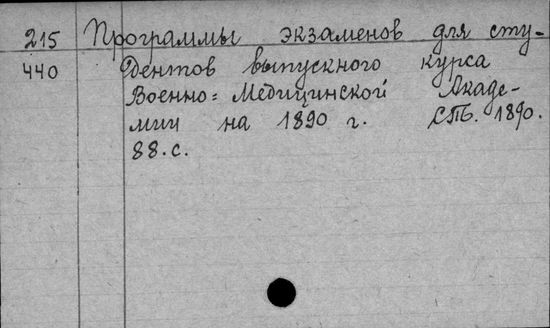 215 Программы экзаменов для сту-
440 дентов выпускного курса
Военно=Медицинской Акаде-
мии на 1890 г. СПБ. 1890.
88.с.